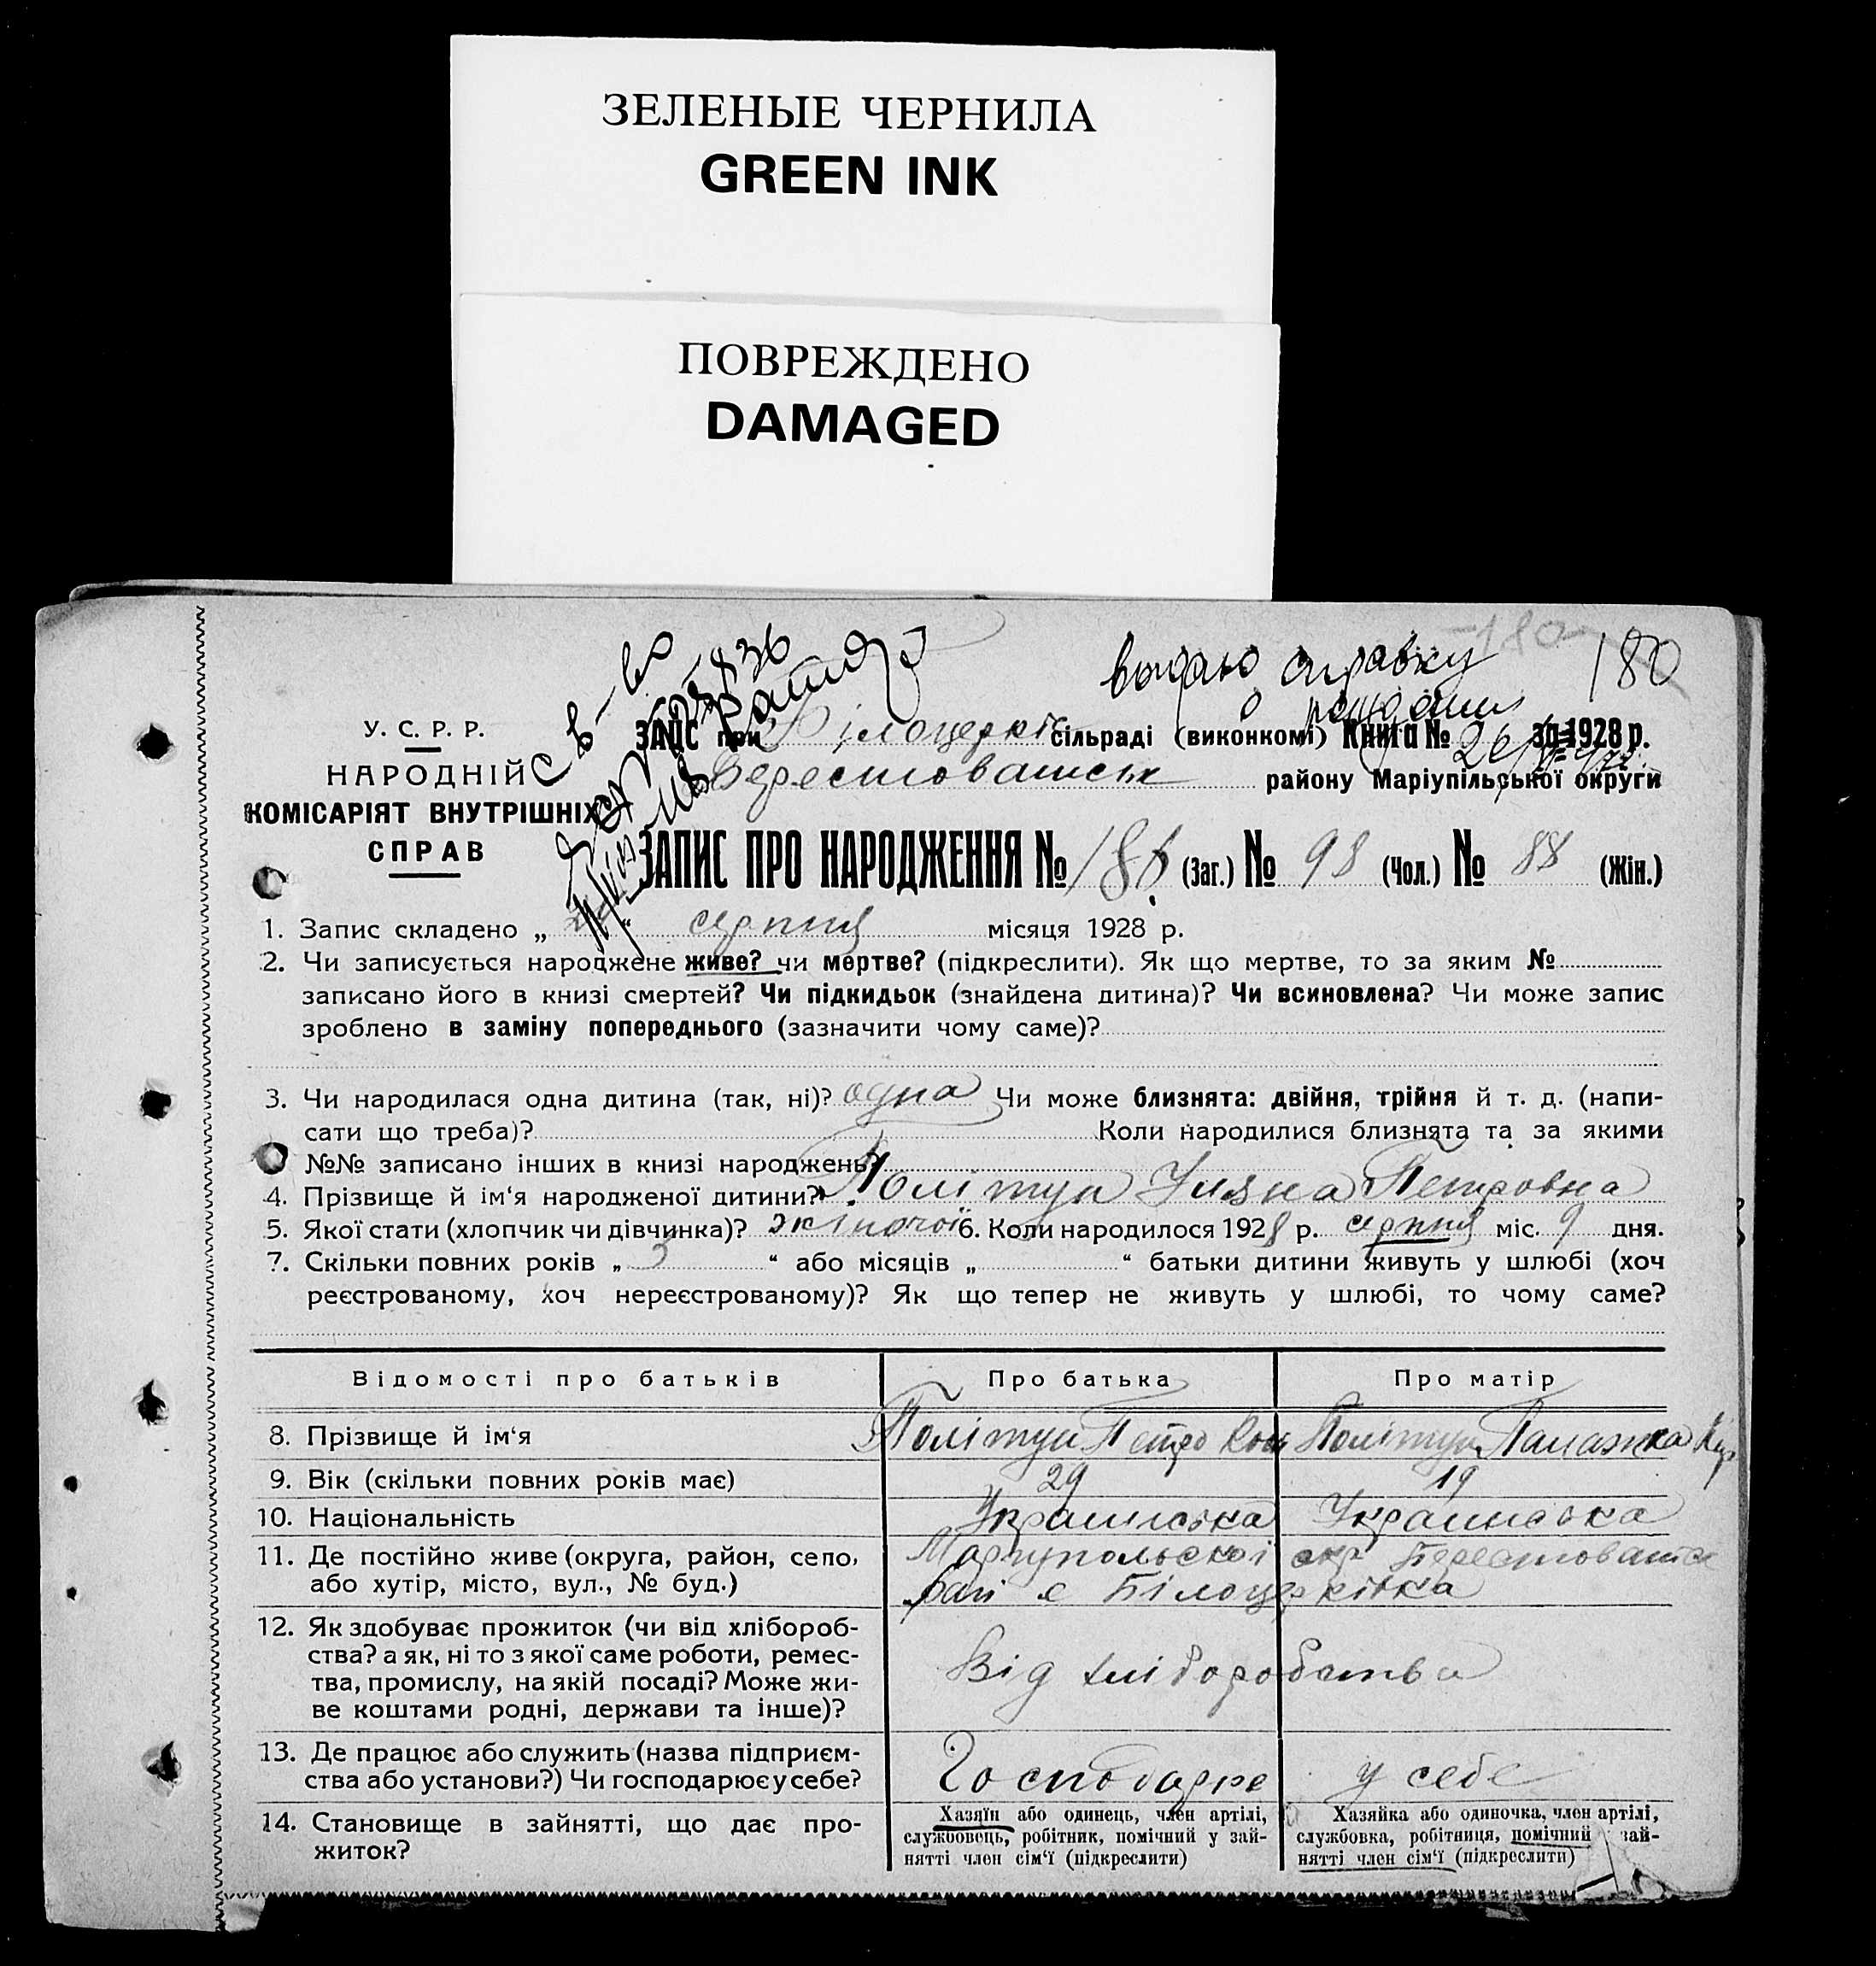 ЗЕЛЕНЫЕ ЧЕРНИЛА
GREEN INK
ПОВРЕЖДЕНО
DAMAGED
180
180
видано справку
о рождении
У. С. Р. Р.
НАРОДНІЙ
КОМІСАРІЯТ ВНУТРІШНІХ
СПРАВ
Св-во
ЗАПИС при Білоцерків сільраді (виконкомі) Книга № за 1928 р.
Берестоватськ району Маріупільської округи
ЗАПИС ПРО НАРОДЖЕННЯ № 186 (Заг.) № 98 (Чол.) № 88 (Жін.)
1. Запис складено „ “ серпня місяця 1928 р.
2. Чи записується народжене живе? чи мертве? (підкреслити). Як що мертве, то за яким №
записано його в книзі смертей? Чи підкидьок (знайдена дитина)? Чи всиновлена? Чи може запис
зроблено в заміну попереднього (зазначити чому саме)?
3. Чи народилася одна дитина (так, ні)? одна Чи може близнята: двійня, трійня й т. д. (напи-
сати що треба)? Коли народилися близнята та за якими
№№ записано інших в книзі народжень?
4. Прізвище й ім‘я народженої дитини? Політун Уляна Петровна
5. Якої стати (хлопчик чи дівчинка)? жіночої 6. Коли народилося 1928 р. серпня міс. 9 дня.
7. Скільки повних років „ 3 “ або місяців „ “ батьки дитини живуть у шлюбі (хоч
реєстрованому, хоч нереєстрованому)? Як що тепер не живуть у шлюбі, то чому саме?
Відомості про батьків Про батька Про матір
8. Прізвище й ім‘я Політун Петро Політун Палажка
9. Вік (скільки повних років має) 29 19
10. Національність Украинська Украинська
11. Де постійно живе (округа, район, село, Маріупольскої окр Берестоватск
або хутір, місто, вул., № буд.) рай с Білоцерківка
12. Як здобуває прожиток (чи від хлібороб-
ства? а як, ні то з якої саме роботи, ремес-
тва, промислу, на якій посаді? Може жи-
ве коштами родні, держави та інше)?
Від хліборобства
13. Де працює або служить (назва підприєм-
ства або установи?) Чи господарює у себе?
Господарює у себе
14. Становище в зайнятті, що дає про-
житок?
Хазяїн або одинець, член артілі,
службовець, робітник, помічний у зай-
нятті член сім‘ї (підкреслити)
Хазяйка або одиночка, член артілі,
службовка, робітниця, помічний зай-
нятті член сім‘ї (підкреслити)